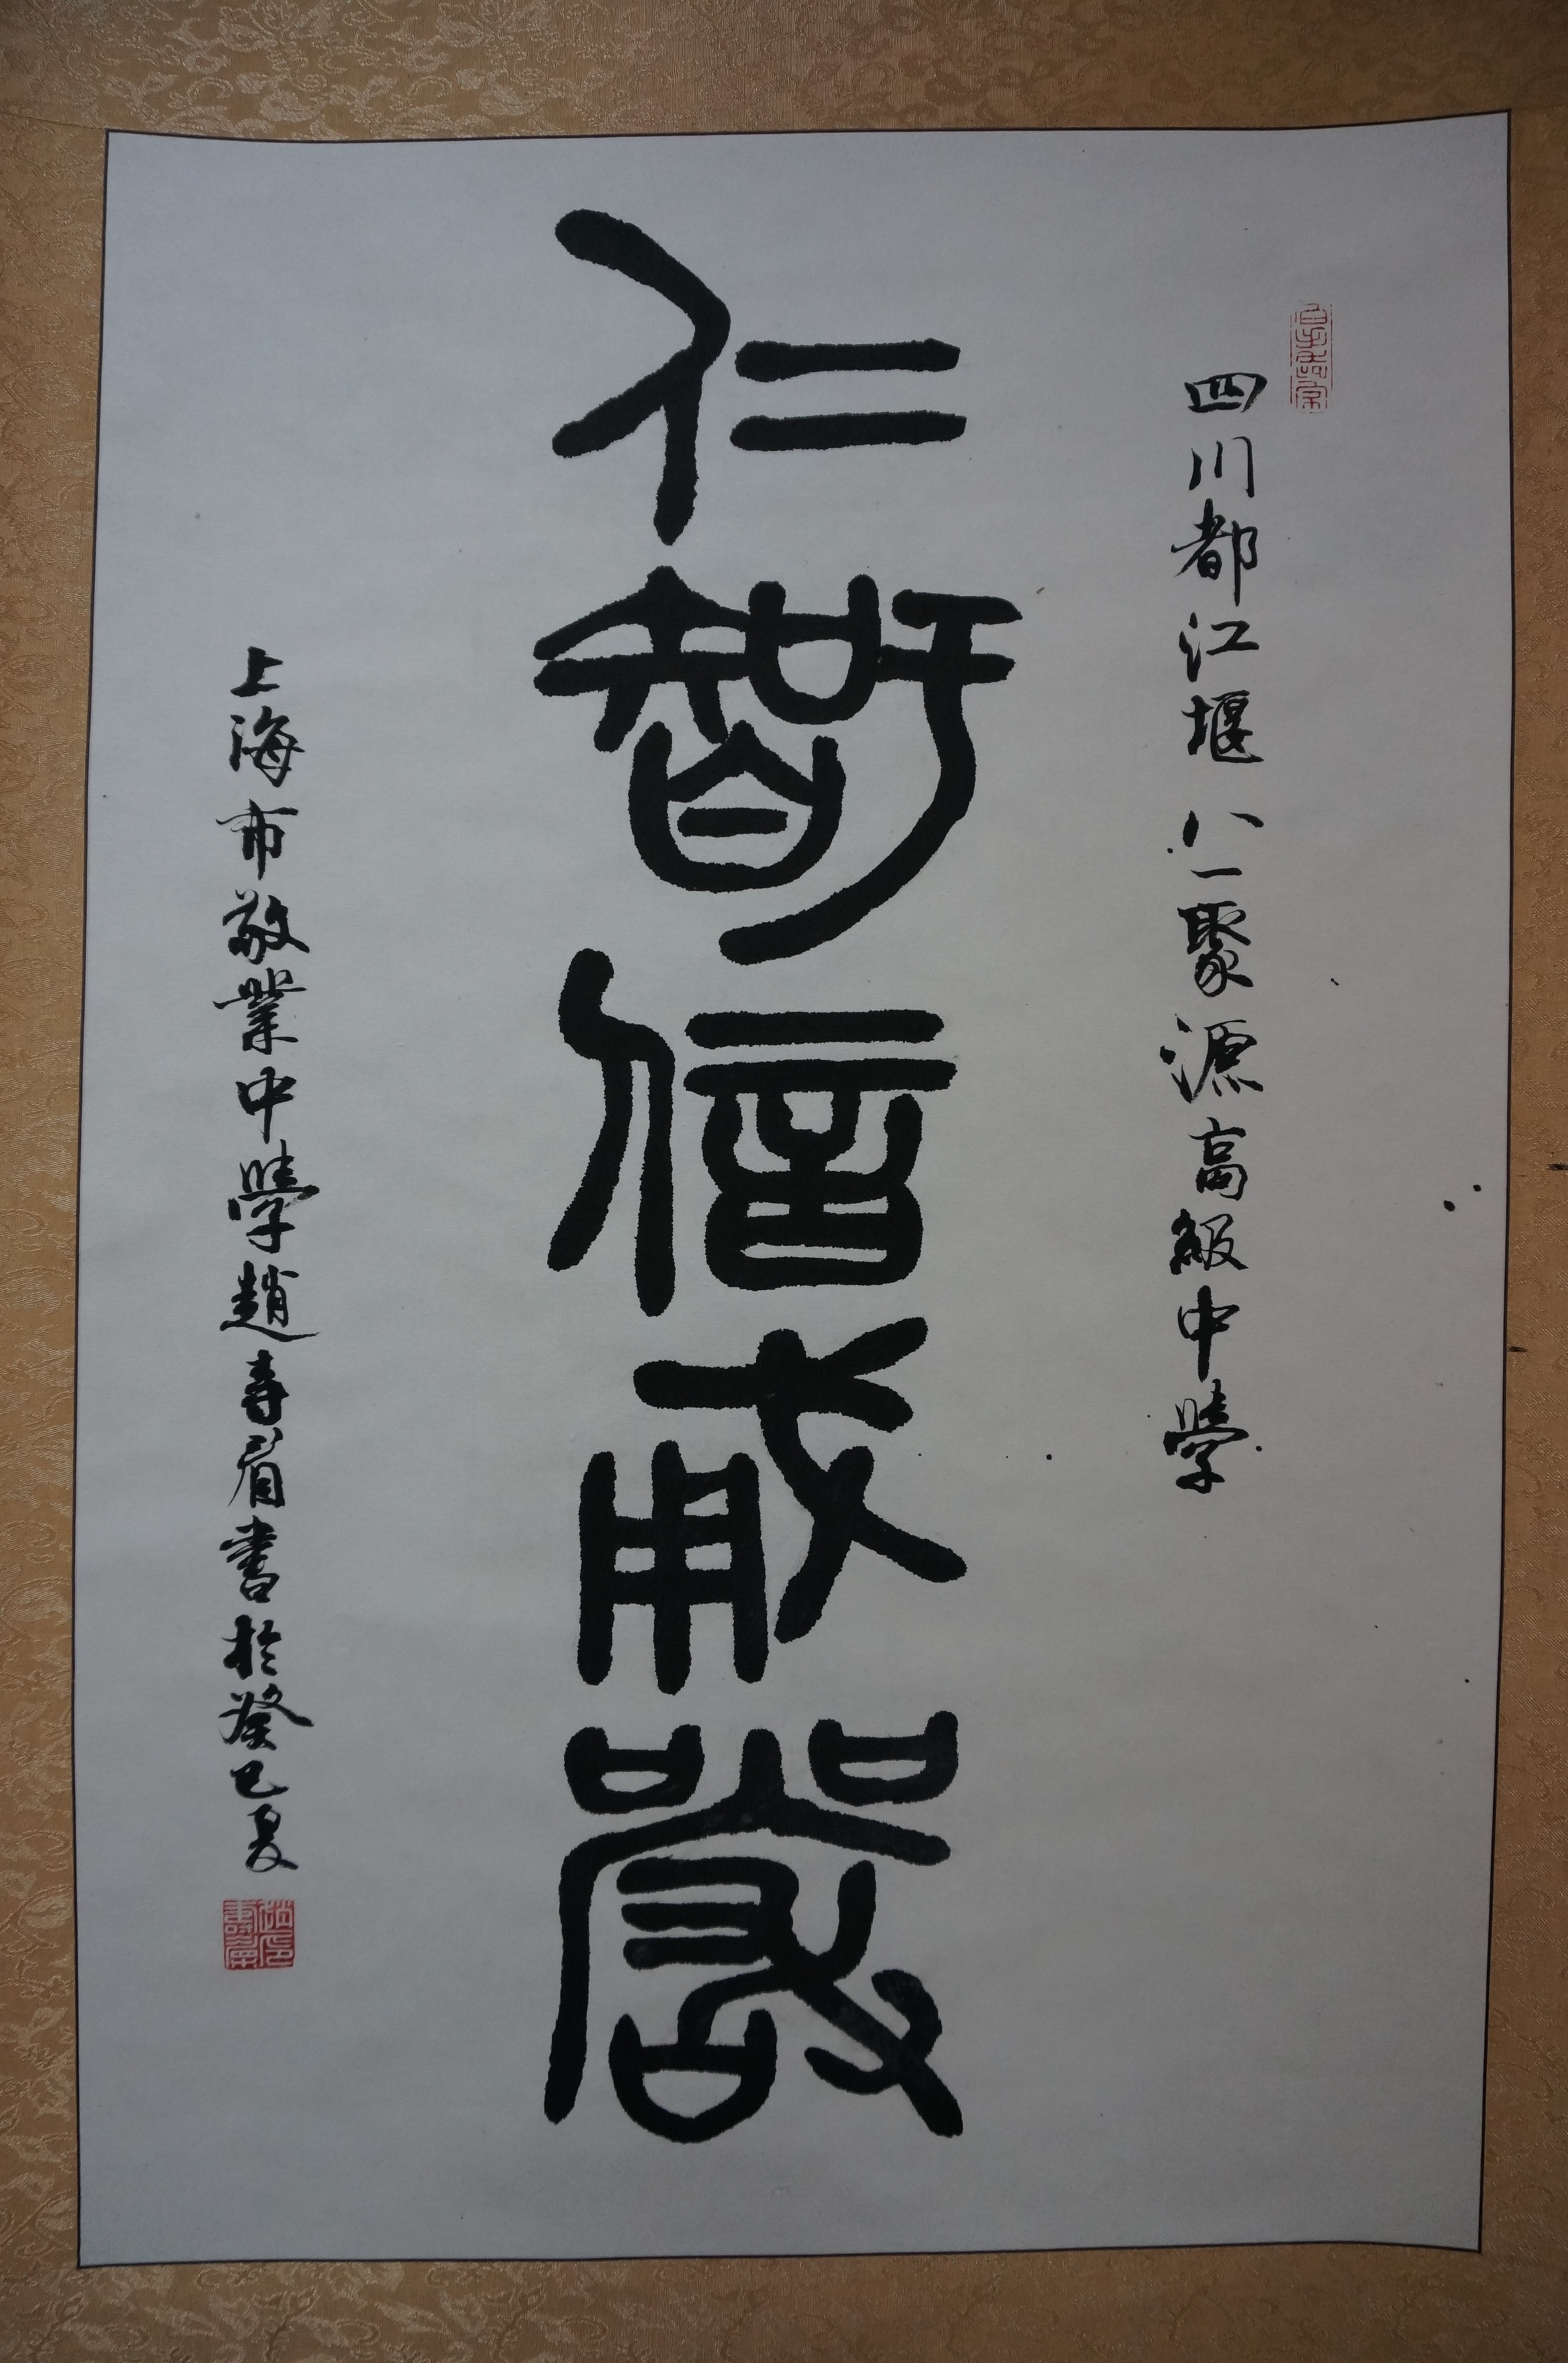 四川都江堰八一聚源高級中學
仁智信勇嚴
上海市敬業中學趙寿眉書於癸巳夏